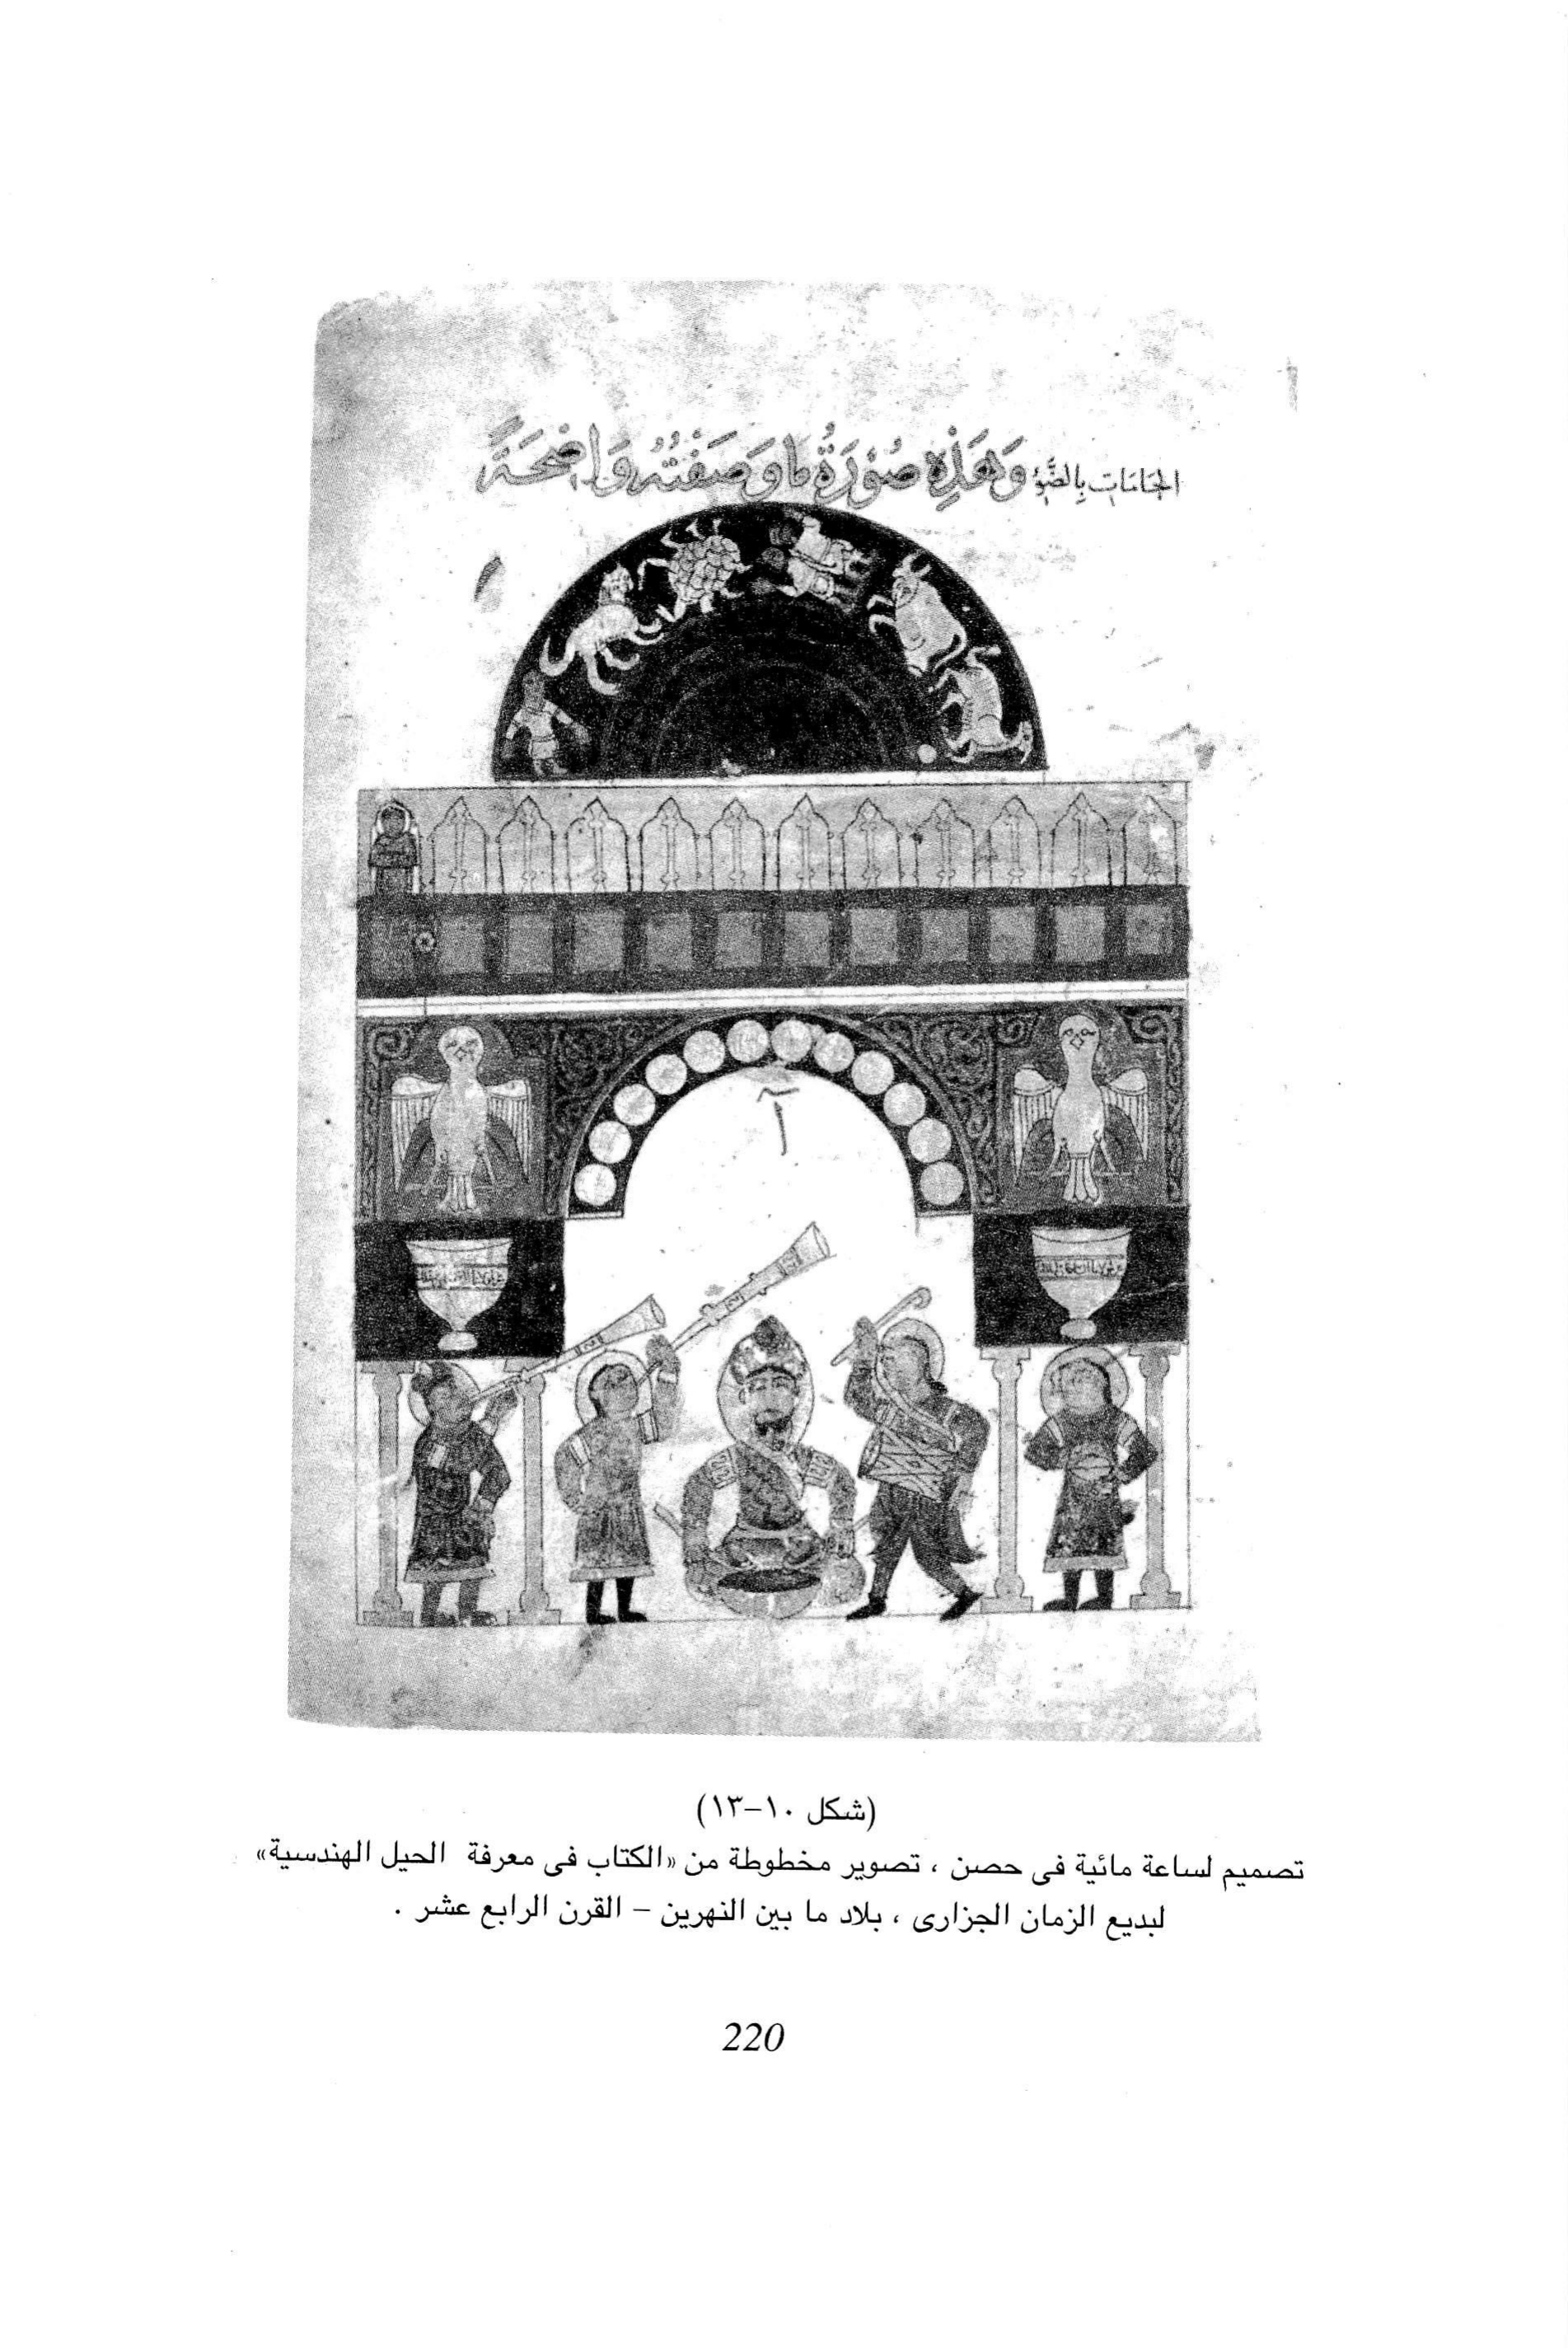 الجامات بالضوء وهذه صورة ما وصفته واضحة
أ
(شكل ١٠-١٣)
تصميم لساعة مائية فى حصن ، تصوير مخطوطة من «الكتاب فى معرفة الحيل الهندسية»
لبديع الزمان الجزارى ، بلاد ما بين النهرين – القرن الرابع عشر .
220